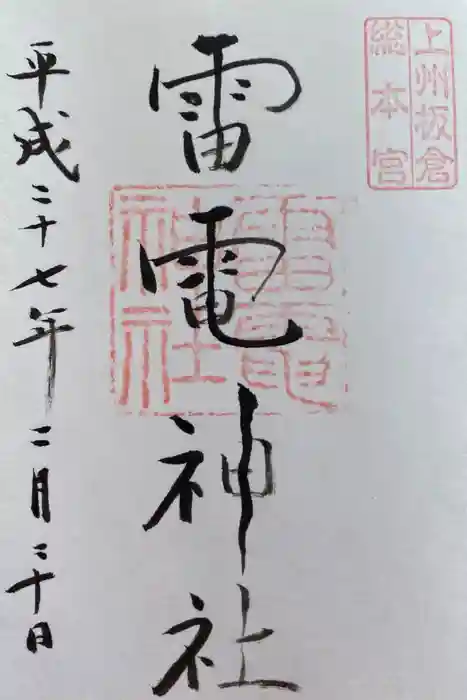 上州板倉
総本宮
雷電神社
雷電神社
平成二十七年二月二十日